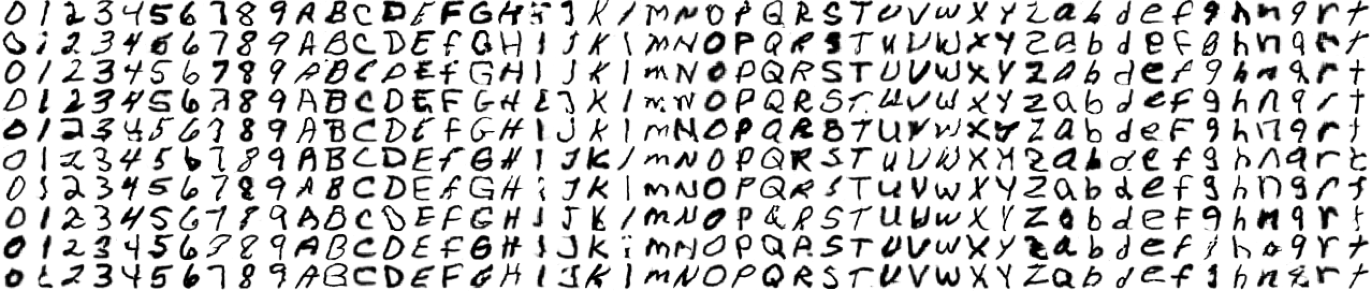 0 1 2 3 4 5 6 7 8 9 A B C D E F G H i J K l m N O P Q R S T U V W X Y Z a b d e f g h n q r t
0 1 2 3 4 5 6 7 8 9 A B C D E f G H I J K l m N O P Q R S T U V W X Y Z a b d e f g h n q r t
0 1 2 3 4 5 6 7 8 9 A B C D E f G H I J K l m N O P Q R S T U V W X Y Z a b d e f g h n q r t
0 1 2 3 4 5 6 7 8 9 A B C D E F G H I J K l m N O P Q R S T U V W X Y Z a b d e f g h n q r t
0 1 2 3 4 5 6 7 8 9 A B C D E f G H I J K l m N O P Q R S T U V W X Y Z a b d e F g h n q r t
0 1 2 3 4 5 6 7 8 9 A B C D E f G H I J K l m N O P Q R S T U V W X Y Z a b d e f g h n q r t
0 1 2 3 4 5 6 7 8 9 A B C D E f G H i J K l m N O P Q R S T U V W X Y Z a b d e f g h n q r t
0 1 2 3 4 5 6 7 8 9 A B C D E F G H I J K l m N O P Q R S T U V W X Y Z a b d e f g h n q r t
0 1 2 3 4 5 6 7 8 9 A B C D E F G H I J K l m N O P Q R S T U V W X Y Z a b d e f g h n q r t
0 1 2 3 4 5 6 7 8 9 A B C D E F G H I J K l m N O P Q R S T U V W X Y Z a b d e f g h n q r t